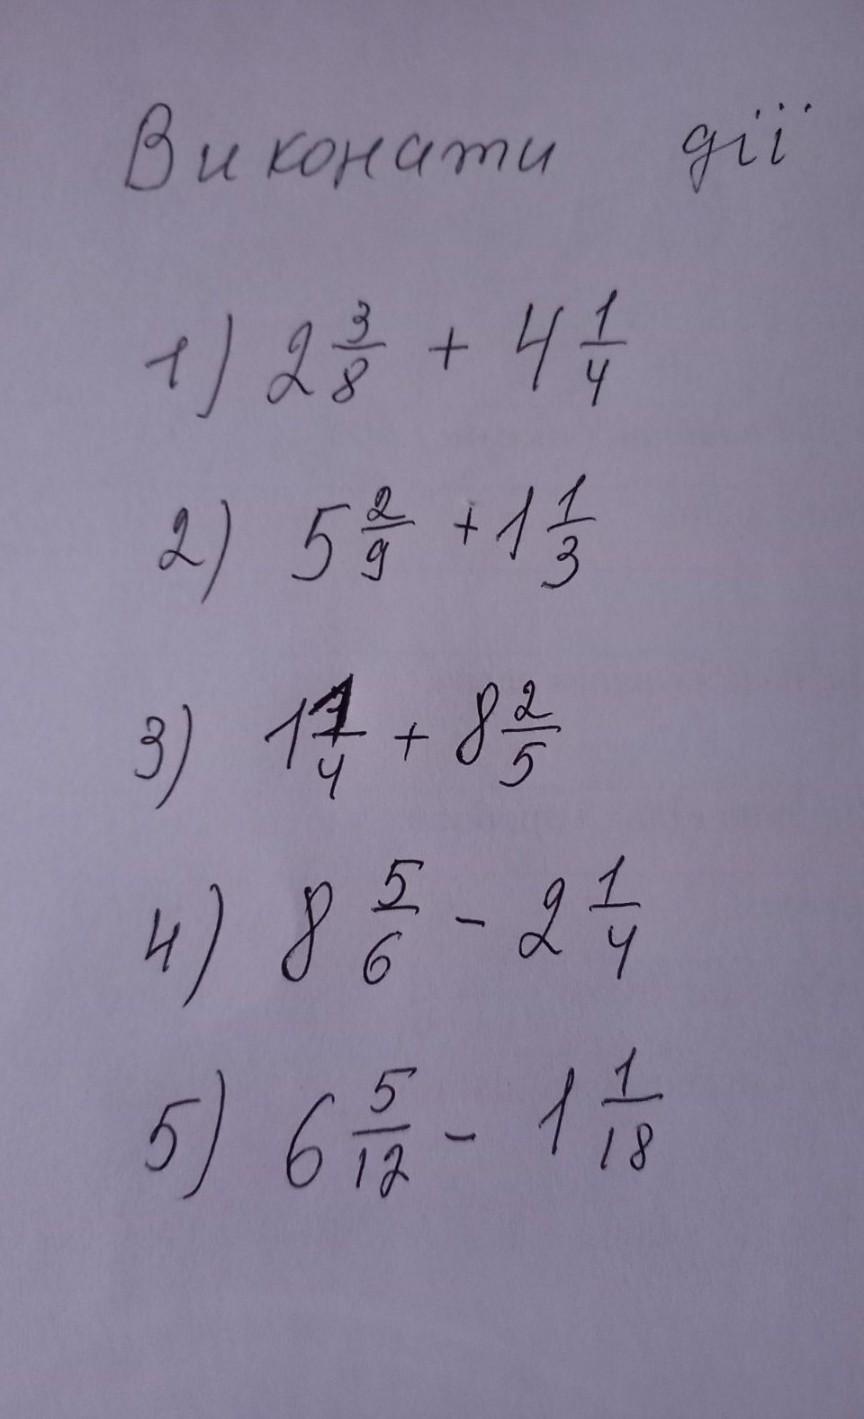 Виконати дії
1) 2 3/8 + 4 1/4
2) 5 2/9 + 1 1/3
3) 1 1/4 + 8 2/5
4) 8 5/6 - 2 1/4
5) 6 5/12 - 1 1/18